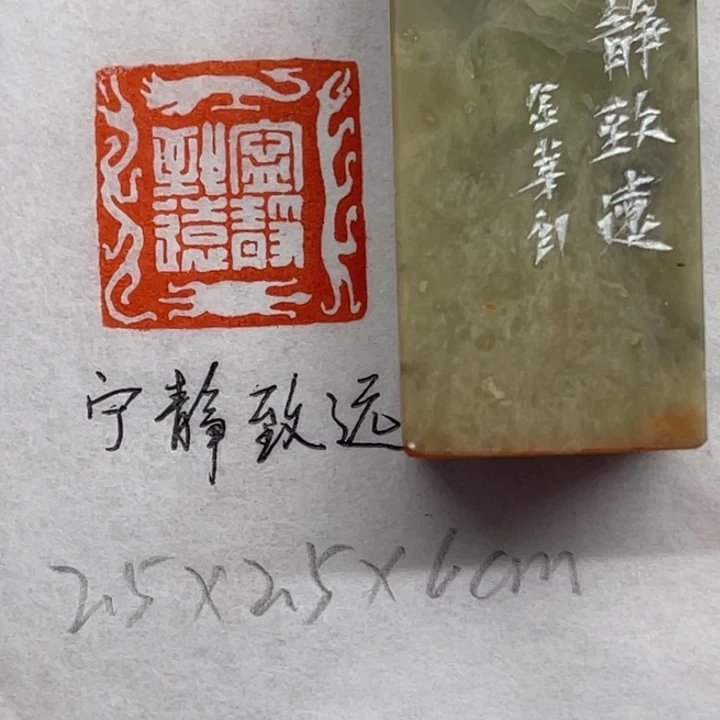 寧靜
致遠
靜致遠
宁静致远
2.5×2.5×6cm